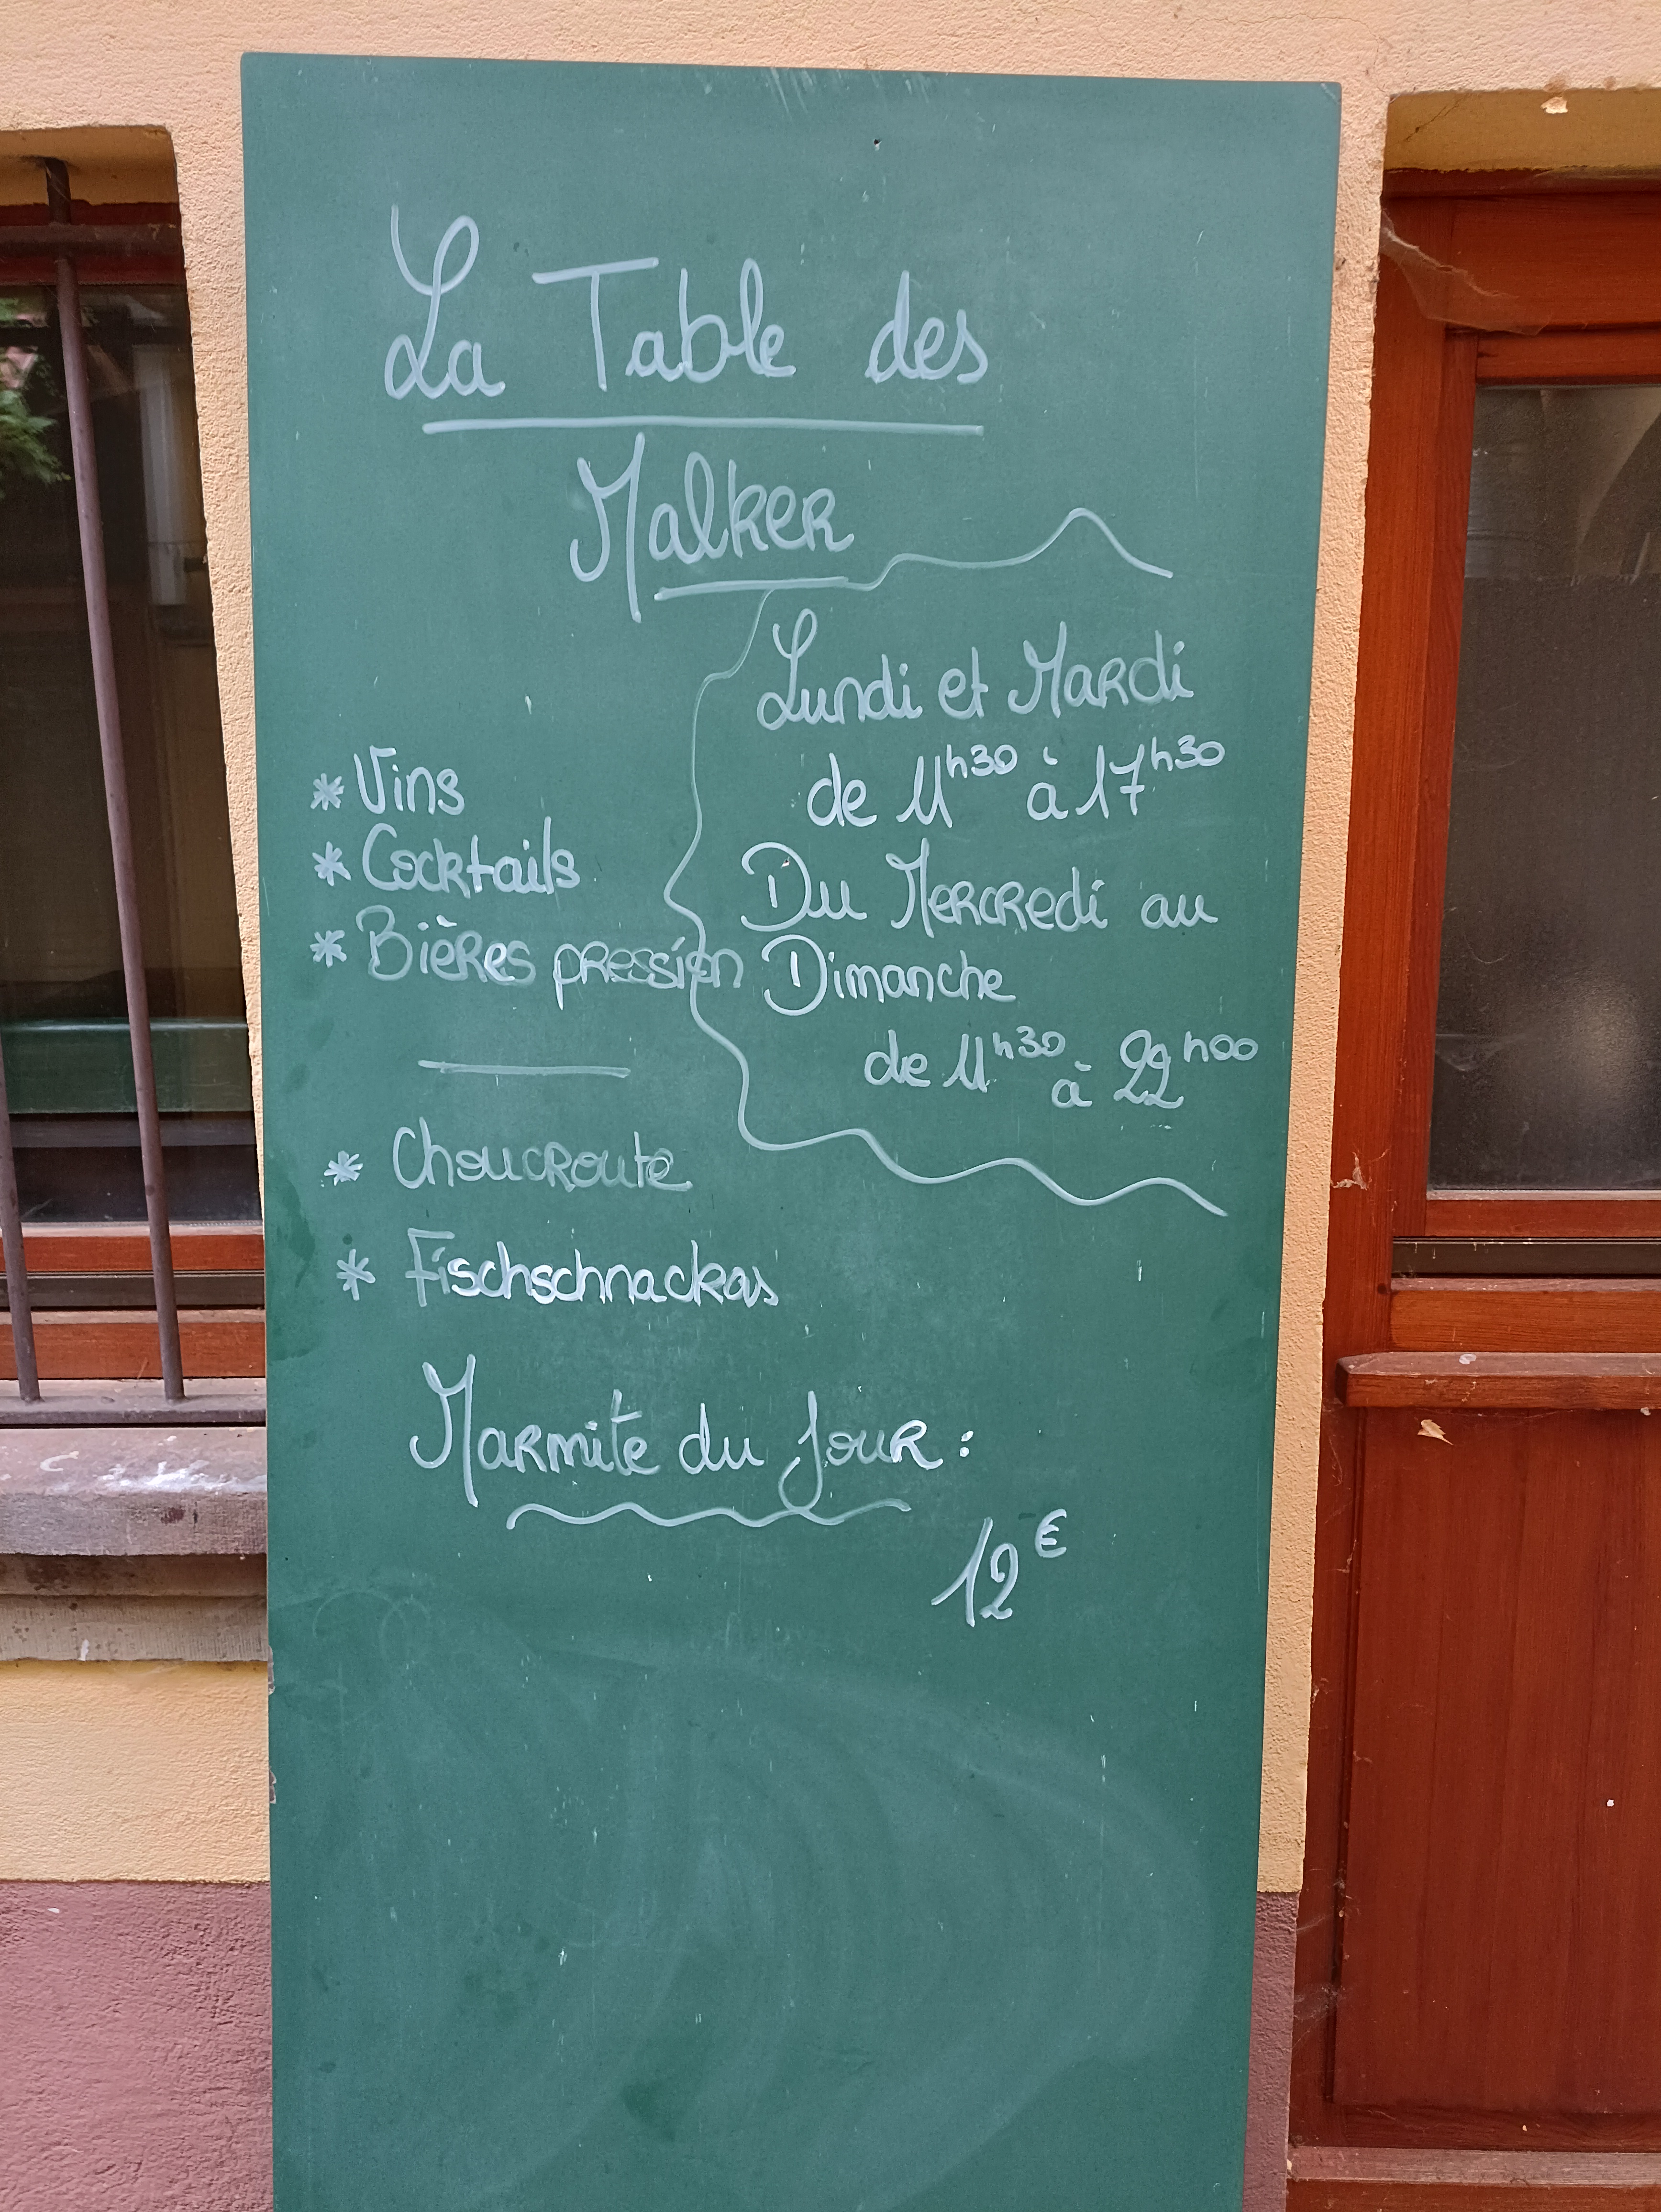 La Table des
Malker
Lundi et Mardi
de 11h30 à 17h30
Du Mercredi au
Dimanche
de 11h30 à 22h00
* Vins
* Cocktails
* Bières pression
* Choucroute
* Fischschnackas
Marmite du jour :
12€